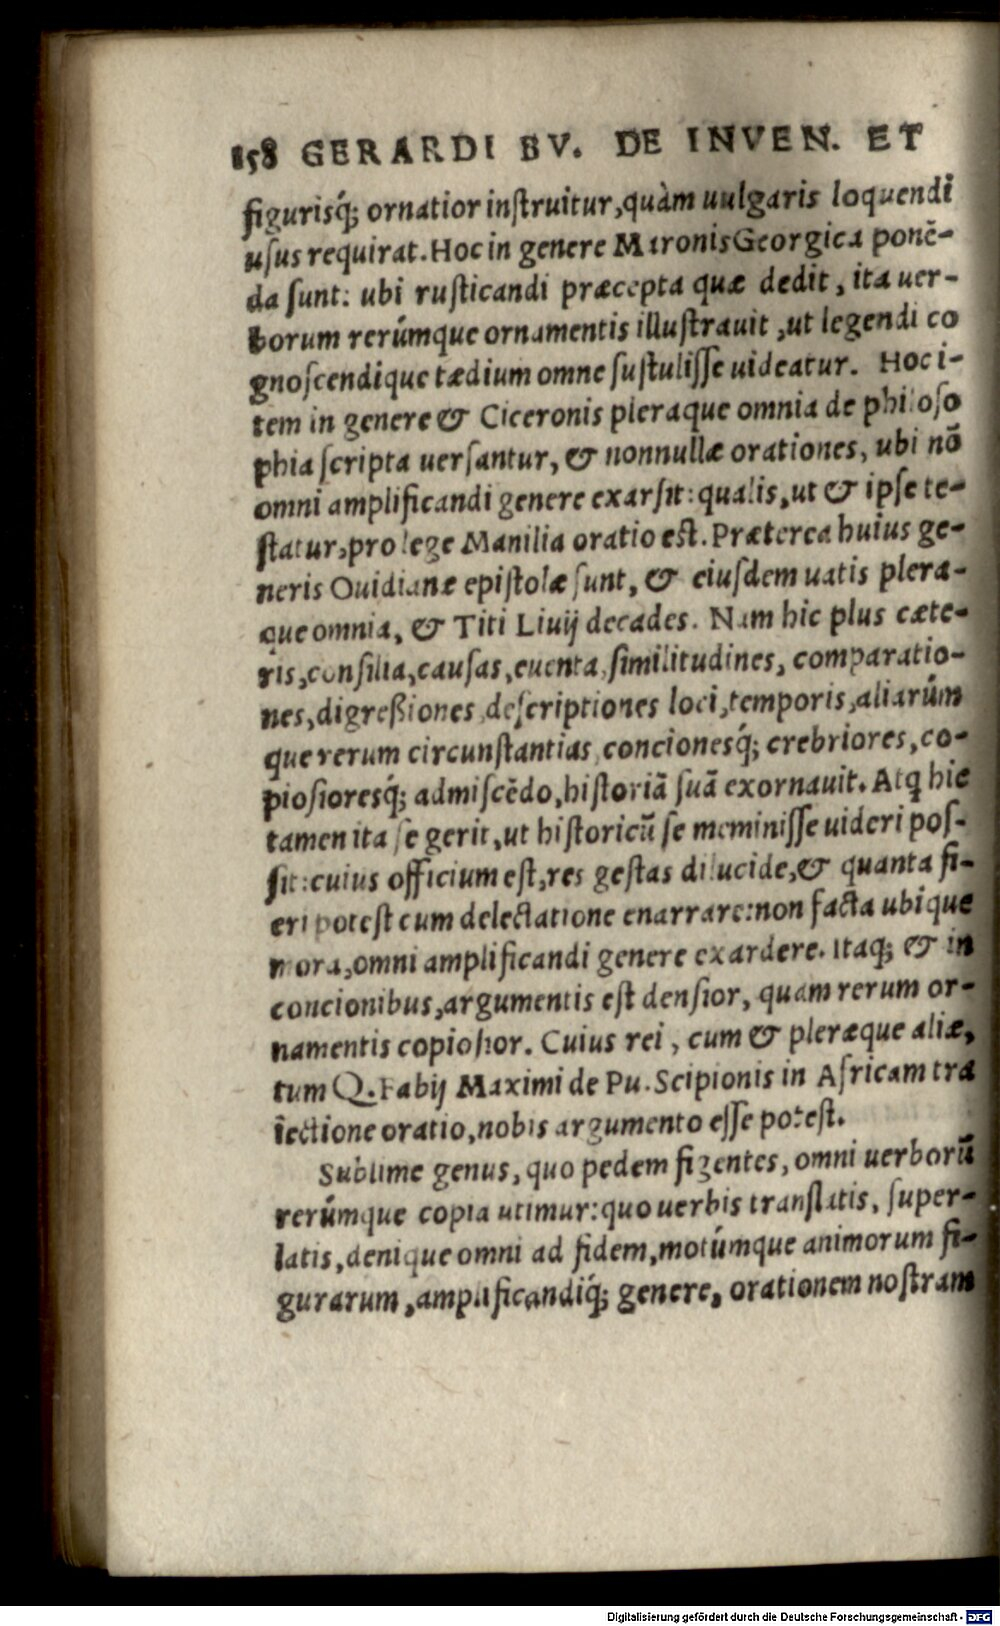 158 GERARDI BV. DE INVEN. ET
figurisq́; ornatior inſtruitur, quàm uulgaris loquendi
uſus requirat. Hoc in genere Maronis Georgica ponē-
da ſunt: ubi ruſticandi præcepta quæ dedit, ita uer-
borum rerúmque ornamentis illuſtrauit, ut legendi co
gnoſcendique tædium omne ſuſtuliſſe uideatur. Hoc i-
tem in genere & Ciceronis pleraque omnia de philoſo
phia ſcripta uerſantur, & nonnullæ orationes, ubi nō
omni amplificandi genere exarſit: qualis, ut & ipſe te-
ſtatur, pro lege Manilia oratio est. Præterea huius ge-
neris Ouidianæ epiſtolæ ſunt, & eiuſdem uatis plera-
que omnia, & Titi Liuij decades. Nam hic plus cæte-
ris, conſilia, cauſas, euenta, ſimilitudines, comparatio-
nes, digreßiones, deſcriptiones loci, temporis, aliarúm
que rerum circunſtantias, concionesq́; crebriores, co-
pioſioresq́; admiſcēdo, hiſtoriā ſuā exornauit. Atq hic
tamen ita ſe gerit, ut hiſtoricū ſe meminiſſe uideri poſ-
ſit: cuius officium eſt, res geſtas dilucide, & quanta fi-
eri poteſt cum delectatione enarrare: non facta ubique
mora, omni amplificandi genere exardere. Itaq; & in
concionibus, argumentis eſt denſior, quam rerum or-
namentis copioſior. Cuius rei, cum & pleræque aliæ,
tum Q. Fabij Maximi de Pu. Scipionis in Africam tra
iectione oratio, nobis argumento eſſe poteſt.
Sublime genus, quo pedem figentes, omni uerborū
rerúmque copia utimur: quo uerbis tranſlatis, ſuper-
latis, denique omni ad fidem, motúmque animorum fi-
gurarum, amplificandiq́; genere, orationem noſtram
Digitalisierung gefördert durch die Deutsche Forschungsgemeinschaft - DFG